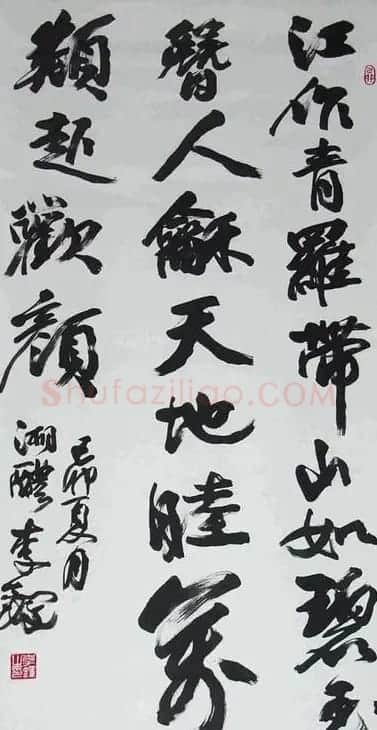 江作青羅帶山如碧玉
簪人龢天地睦萬
類起歡顏
己卯夏月
湖醴李
Shufaziliao.com